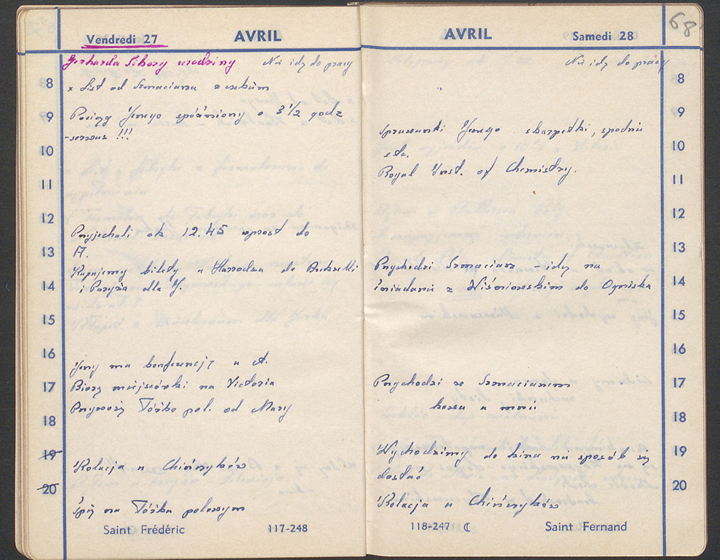 68
Vendredi 27 AVRIL
Gerharda urodziny Nie idę do pracy
8
x List od
9
Pociąg Jerzego spóźniony o 3 1/2 godz
!!!
10
11
12
Przyjechali ok 12.45 wprost do
13
A.
Kupujemy bilety u Harrodsa do Brukselli
14
i Paryża dla J.
15
16
Jerzy ma konferencję u A.
17
Biorę na Victoria
Przywożę łóżko pol. od Mary
18
19
Kolacja u Chińczyków
20
Śpię na łóżku polowym
Saint Frédéric 117-248
AVRIL Samedi 28
Nie idę do pracy
8
9
Sprawunki Jerzego skarpetki, spodnie
10
etc.
Royal Inst. of Chemistry.
11
12
13
Przychodzi – idę na
14
śniadanie z Wiśniowskim do Ogniska
15
16
17
Przychodzi ze
u mnie
18
19
Wychodzimy do kina nie sposób się
dostać
20
Kolacja u Chińczyków
118-247 ☾ Saint Fernand